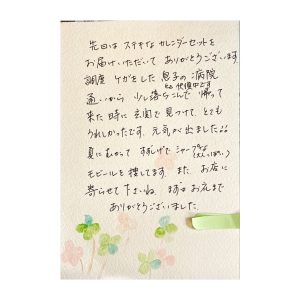 先日は ステキな カレンダーセットを
お届けいただいて ありがとうございます
調度 ケガをした 息子の 病院
通いから 少し落ちこんで 帰って
来た時に 玄関で 見つけて、とても
うれしかったです。元気が出ました
夏にむかって すずしげで シャープな
モビールを 捜してます。また、お店に
寄らせて 下さいね。まずは お礼まで
ありがとうございました。